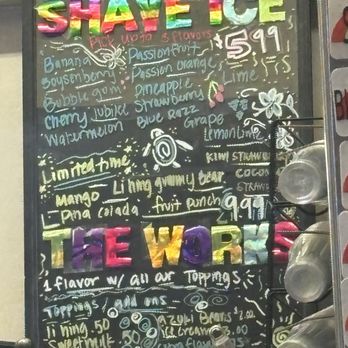 SHAVE ICE
Pick up to 3 flavors $5.99
Banana Passionfruit
Boysenberry Passion orange
Bubble gum Pineapple Lime
Cherry Jubilee Strawberry
Watermelon Blue Razz Grape
Lemon Lime
Limited time
KIWI STRAW
Li hing gummy bear COCON
Mango STRAW
Pina colada fruit punch
9.99
THE WORKS
1 flavor w/ all our Toppings
Toppings / add ons
li hing .50 azuki Beans 2.00
Sweet milk .50 ice cream 3.00